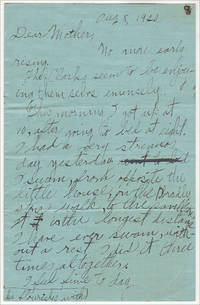 Aug 8, 1920
Dear Mother,
No more early
rising.
The Yorks seem to be enjoy-
ing them selves imensely.
This morning I got up at
10, after going to bed at eight.
I had a very strenous
day yesterday
I swam from opposite the
little house, on the
to the
at it is the longest distance
I have ever swam, with-
out a rest. I did it three
times, al together.
I feel fine to day.